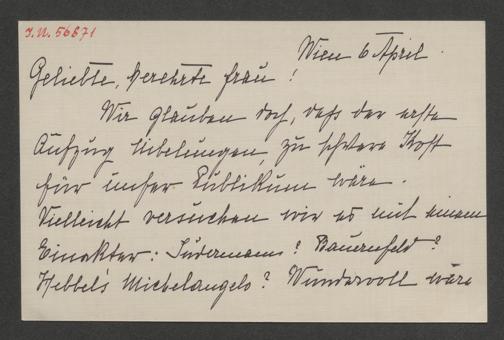 I.N. 56871
Wien 6 April.
Geliebte, verehrte Frau!
Wir glauben doch, daß der erste
Aufzug Nibelungen, zu schwere Kost
für unser Publikum wäre.
Vielleicht versuchen wir es mit einem
Einakter: Sudermann? Bauernfeld?
Hebbel's Michelangelo? Wundervoll wäre